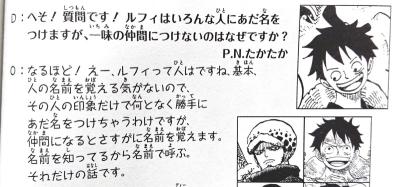 D：へそ！質問です！ルフィはいろんな人にあだ名を
つけますが、一味の仲間につけないのはなぜですか？
P.N.たかたか
O：なるほど！えー、ルフィって人はですね、基本、
人の名前を覚える気がないので、
その人の印象だけで何となく勝手に
あだ名をつけちゃうわけですが、
仲間になるとさすがに名前を覚えます。
名前を知ってるから名前で呼ぶ。
それだけの話です。